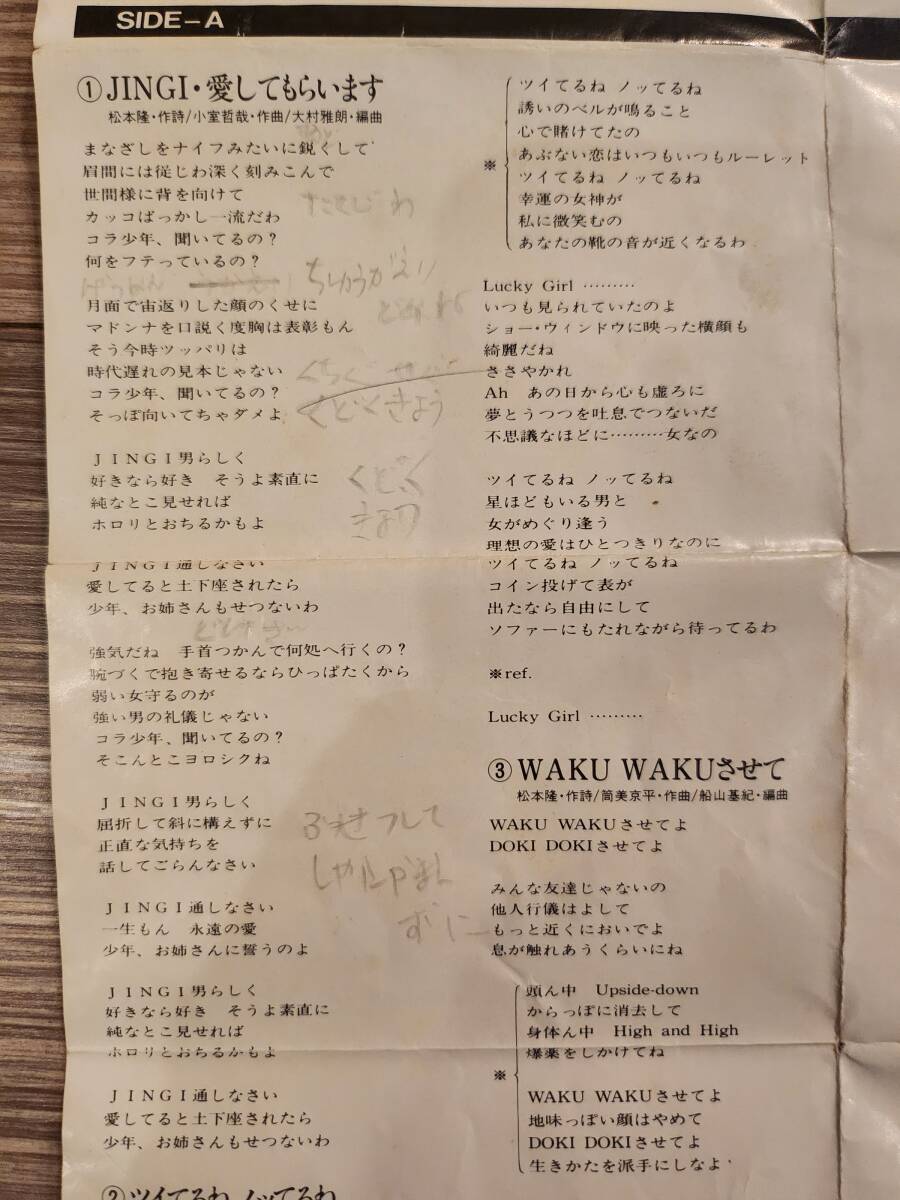 SIDE-A
①JINGI・愛してもらいます
松本隆・作詩/小室哲哉・作曲/大村雅朗・編曲
まなざしをナイフみたいに鋭くして
眉間には従じわ深く刻みこんで
世間様に背を向けて
たてじわ
カッコばっかし一流だわ
コラ少年、聞いてるの?
何をフテっているの?
げつめん
ちゅうがえり
月面で宙返りした顔のくせに
マドンナを口説く度胸は表彰もん
そう今時ツッパリは
時代遅れの見本じゃない
コラ少年、聞いてるの?
くどくきょう
そっぽ向いてちゃダメよ
JINGI男らしく
好きなら好き そうよ素直に
くどく
純なとこ見せれば
ホロリとおちるかもよ
JINGI通しなさい
愛してると土下座されたら
少年、お姉さんもせつないわ
強気だね 手首つかんで何処へ行くの?
腕づくで抱き寄せるならひっぱたくから
弱い女守るのが
強い男の礼儀じゃない
コラ少年、聞いてるの?
そこんとこヨロシクね
JINGI男らしく
屈折して斜に構えずに
正直な気持ちを
話してごらんなさい
ずに
JINGI通しなさい
一生もん 永遠の愛
少年、お姉さんに誓うのよ
JINGI男らしく
好きなら好き そうよ素直に
純なとこ見せれば
ホロリとおちるかもよ
JINGI通しなさい
愛してると土下座されたら
少年、お姉さんもせつないわ
②ツイてるね ノッてるね
ツイてるね ノッてるね
誘いのベルが鳴ること
心で賭けてたの
※ あぶない恋はいつもいつもルーレット
ツイてるね ノッてるね
幸運の女神が
私に微笑むの
あなたの靴の音が近くなるわ
Lucky Girl ………
いつも見られていたのよ
ショー・ウィンドウに映った横顔も
綺麗だね
ささやかれ
Ah あの日から心も虚ろに
夢とうつつを吐息でつないだ
不思議なほどに………女なの
ツイてるね ノッてるね
星ほどもいる男と
女がめぐり逢う
理想の愛はひとつきりなのに
ツイてるね ノッてるね
コイン投げて表が
出たなら自由にして
ソファーにもたれながら待ってるわ
※ref.
Lucky Girl ………
③WAKU WAKUさせて
松本隆・作詩/筒美京平・作曲/船山基紀・編曲
WAKU WAKUさせてよ
DOKI DOKIさせてよ
みんな友達じゃないの
他人行儀はよして
もっと近くにおいでよ
息が触れあうくらいにね
頭ん中 Upside-down
からっぽに消去して
身体ん中 High and High
爆薬をしかけてね
※
WAKU WAKUさせてよ
地味っぽい顔はやめて
DOKI DOKIさせてよ
生きかたを派手にしなよ